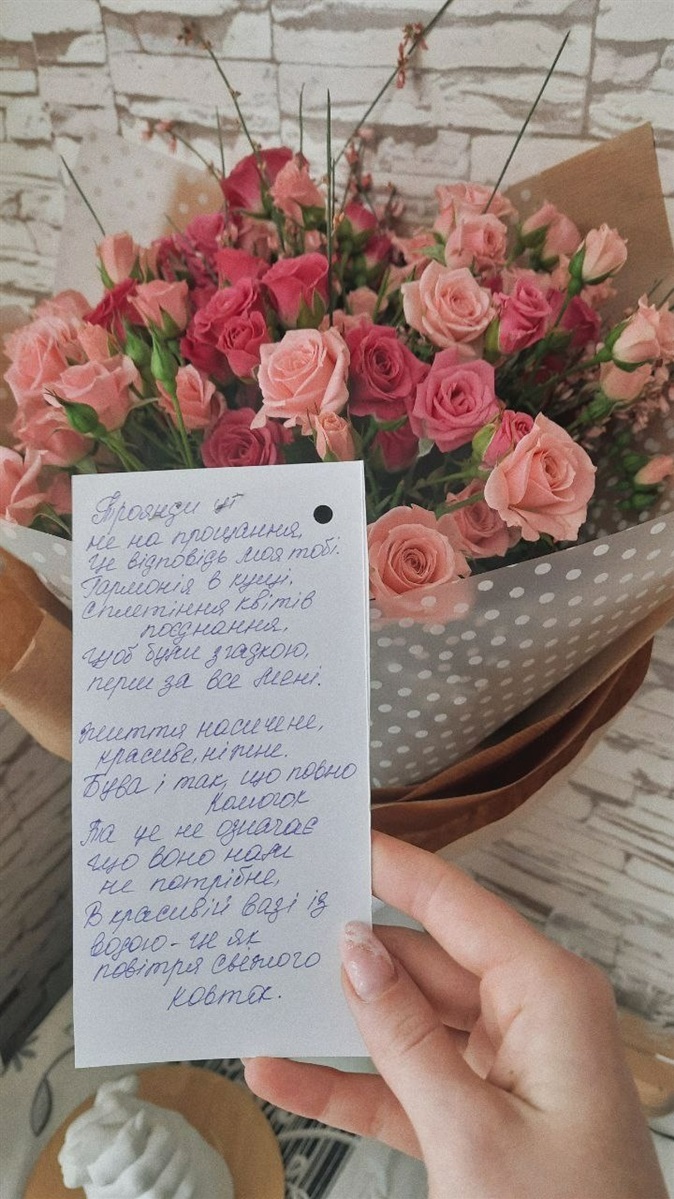 Троянди ці
не на прощання,
Це відповідь моя тобі.
Гармонія в кущі.
Сплетіння квітів
поєднання,
щоб були згадкою,
перш за все мені.
життя насичене,
красиве, ніжне.
Бува і так, що повно
колючок
Та це не означає
що воно нам
не потрібне,
В красивій вазі із
водою - це як
повітря свіжого
ковток.